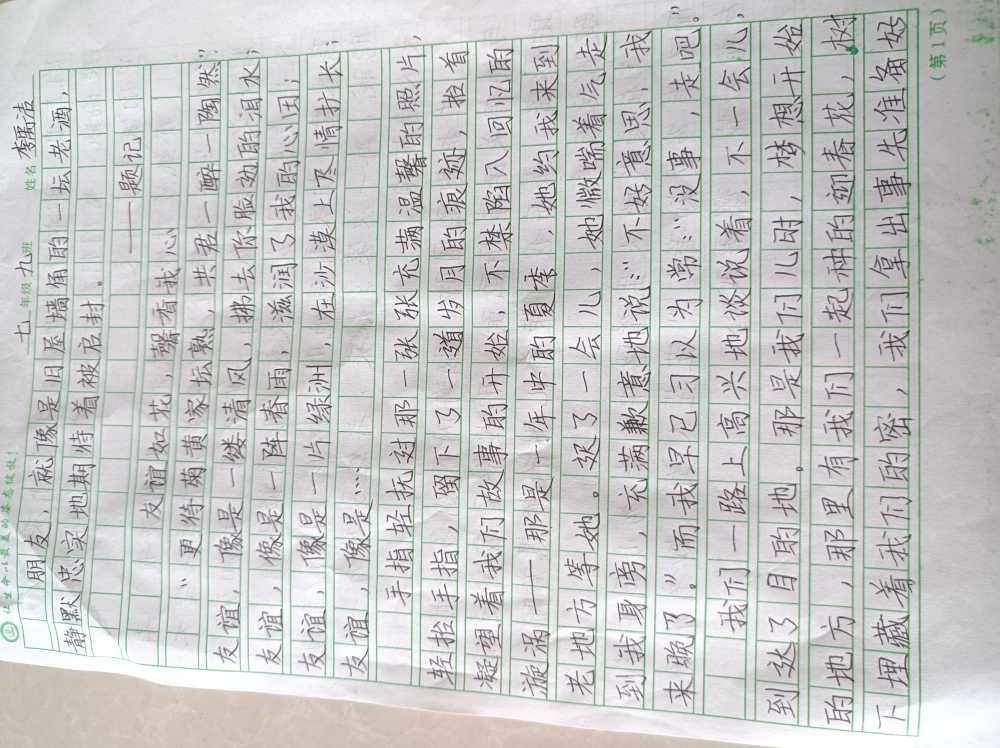 让生命以最美的姿态绽放！
七年级九班 姓名
朋友，就像是旧屋墙角的一坛老酒，
静默忠实地期待着被启封。
——题记
友谊如花，馨香我心
“更待菊黄家坛熟，共君一醉一陶然”
友谊，像是一缕清风，拂去你脸劲的泪水；
友谊，像是一阵春雨，滋润了我的心田；
友谊，像是一片绿洲，在沙漠上尽情扩长；
友谊，像是……
手指轻抚过那一张张充满温馨的照片，
轻抬手指，留下了一道岁月的痕迹，捡着
凝望着我们故事的开始，不禁陷入回忆的
漩涡——那是一年中的夏季，她约我来到
老地方等她。迟了一会儿，她微喘着气走
到我身旁，充满歉意地说：“不好意思，我
来晚了。”而我早已习以为常：“没事，走吧。”
我们一路上高兴地谈说着，不一会儿，
到达了目的地。那是我们儿时，梦想开始
的地方，那里有我们一起种的迎春花，树
下埋藏着我们的密，我们拿出事先准备好
（第1页）